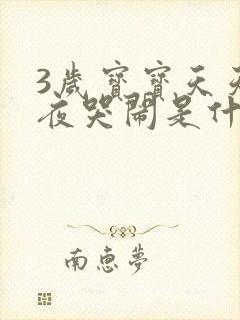 3歲寶寶天天
夜哭鬧是什
南惠夢